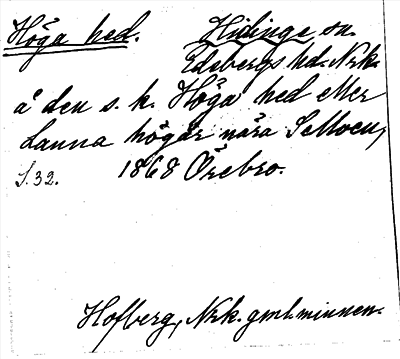 Höga hed. Hidinge sn.
Edsbergs hd. Nrk.
å den s. k. Höga hed eller
Lanna högar nära
S. 32. 1868 Örebro.
Hofberg, Nrk. gml. minnen.